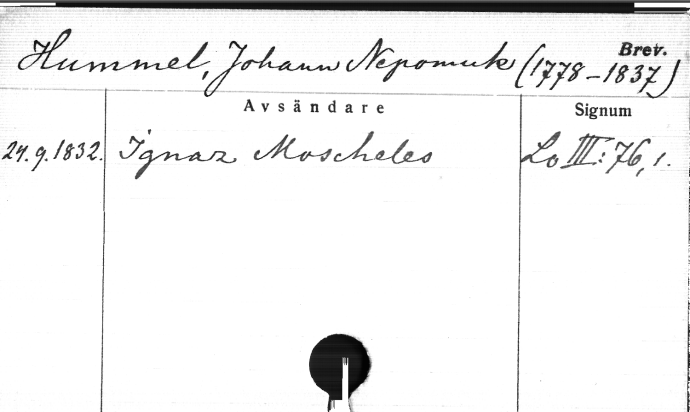 Brev.
Hummel, Johann Nepomuk (1778-1837)
Avsändare Signum
24.9.1832. Ignaz Moscheles Lo III:76,1.